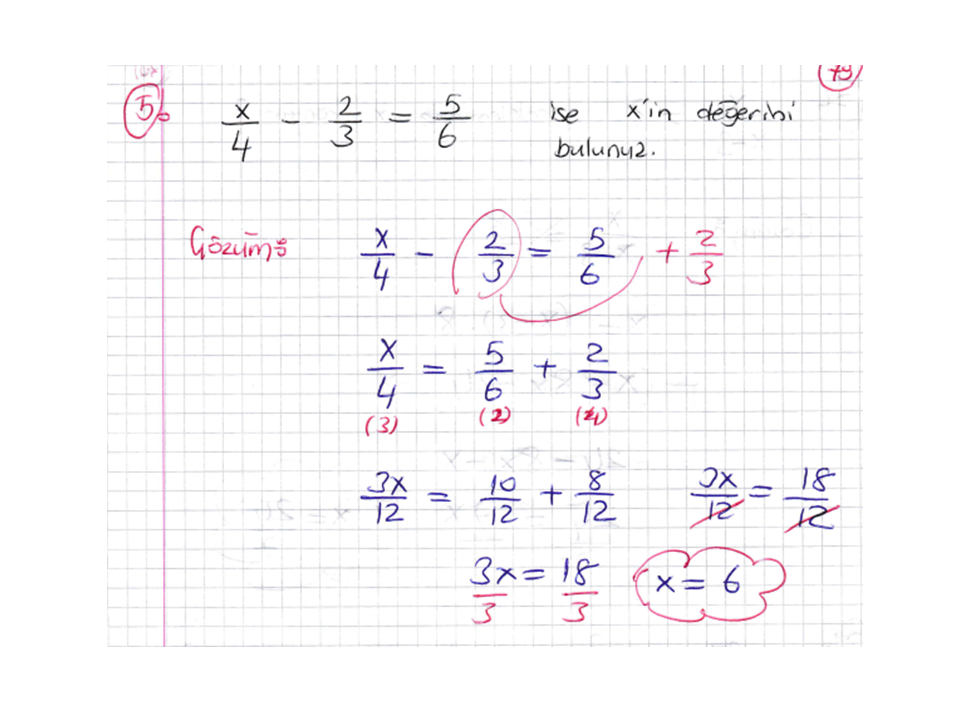 79
5. x/4 - 2/3 = 5/6 ise x'in değerini
bulunuz.
Çözüm: x/4 - 2/3 = 5/6 + 2/3
x/4 = 5/6 + 2/3
(3) (2) (4)
3x/12 = 10/12 + 8/12 3x/12 = 18/12
3x/3 = 18/3 x = 6